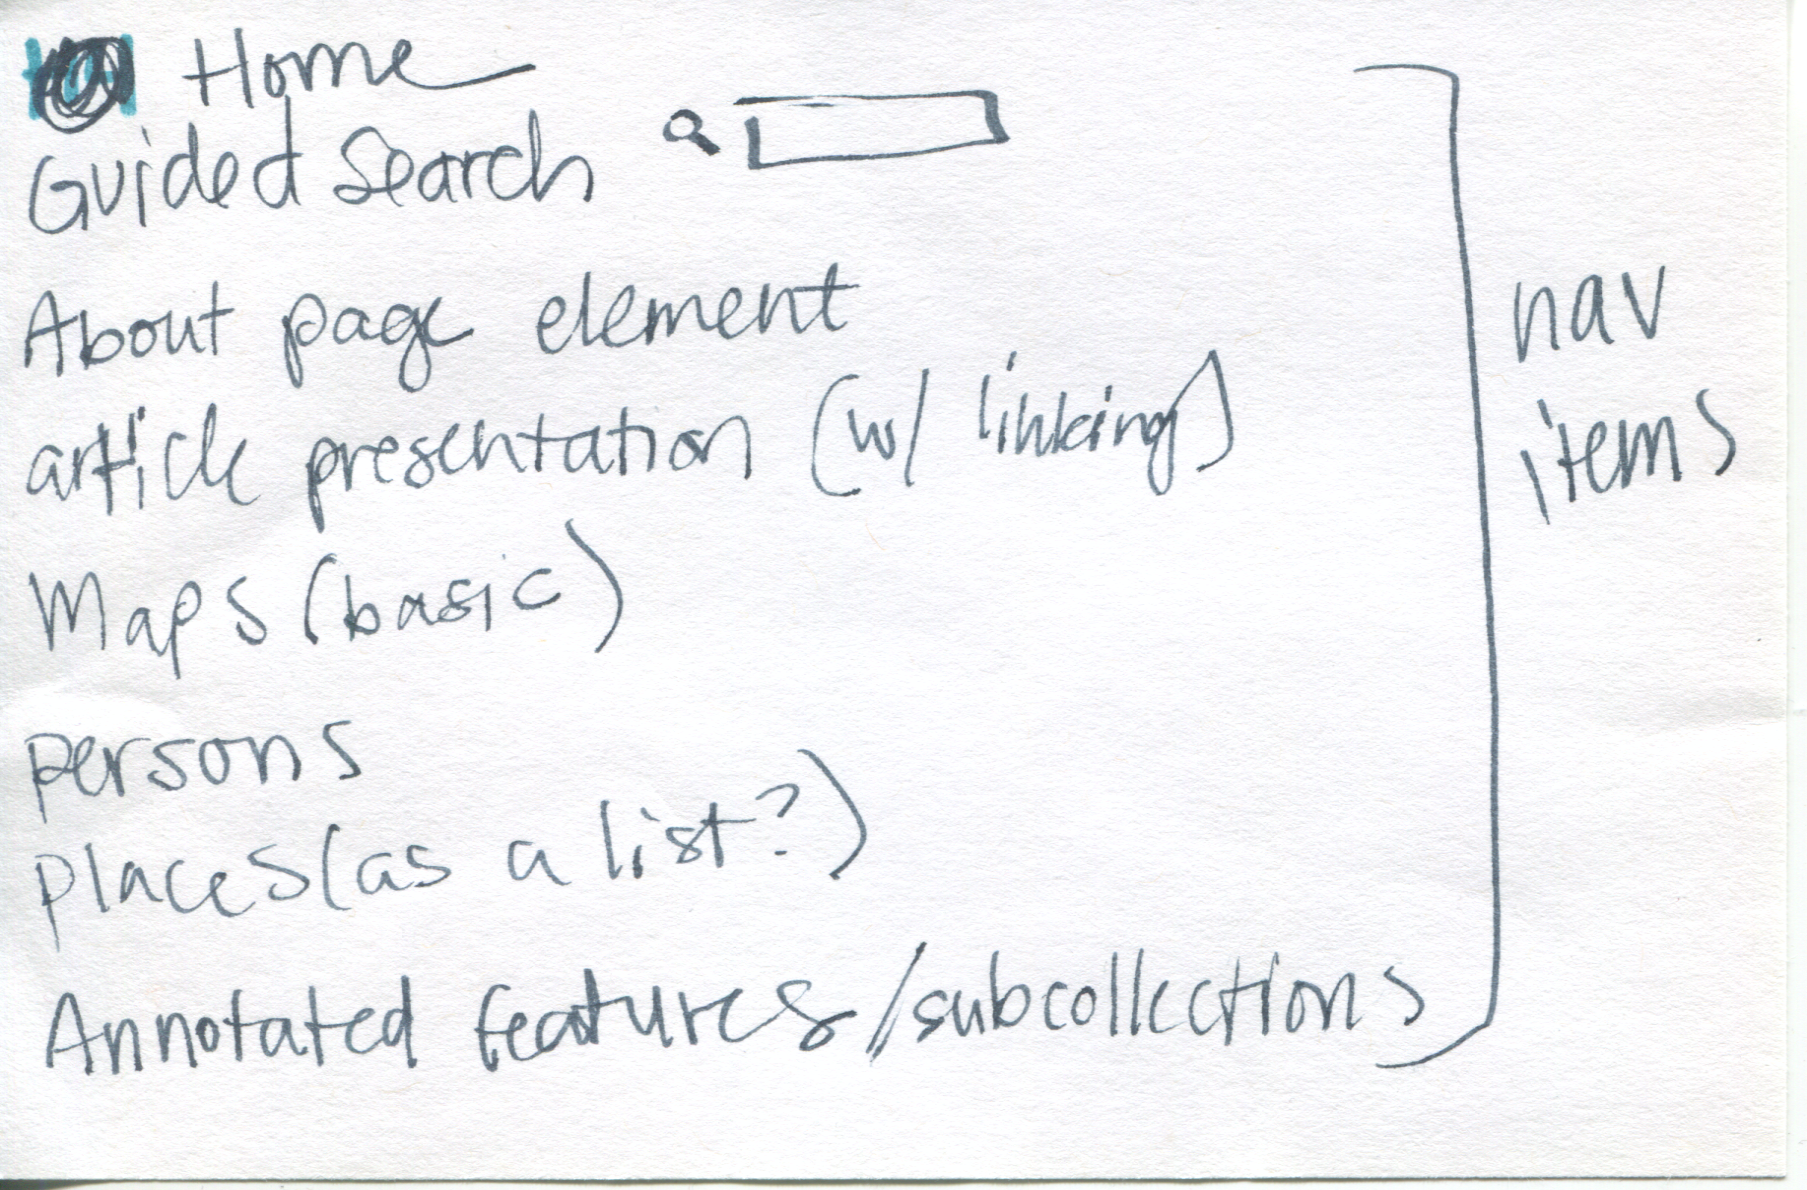 Home
Guided Search
About page element
article presentation (w/ linking)
Maps (basic)
persons
places (as a list?)
Annotated features/subcollections
nav
items